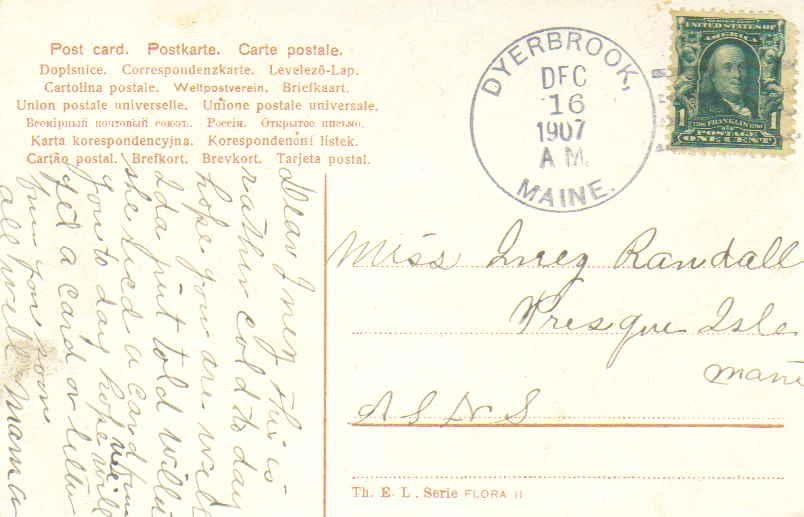 Post card. Postkarte. Carte postale.
Dopisnice. Correspondenzkarte. Levelező-Lap.
Cartolina postale. Weltpostverein. Briefkaart.
Union postale universelle. Unione postale universale.
Всемірный почтовый союзъ. Россія. Открытое письмо.
Karta korespondencyjna. Korespondenční lístek.
Cartão postal. Brefkort. Brevkort. Tarjeta postal.
DYERBROOK,
DEC
16
1907
A M.
MAINE.
UNITED STATES OF
AMERICA
FRANKLIN
1 1
POSTAGE
ONE CENT
Miss Inez Randall
Presque Isle
Maine
A S N S
dear Inez this is
rather cold to day
hope you are well
Ida just told
she lied a card from
you to day hope will
get a card or letter
from you soon
all well mama
Th. E. L. Serie FLORA II